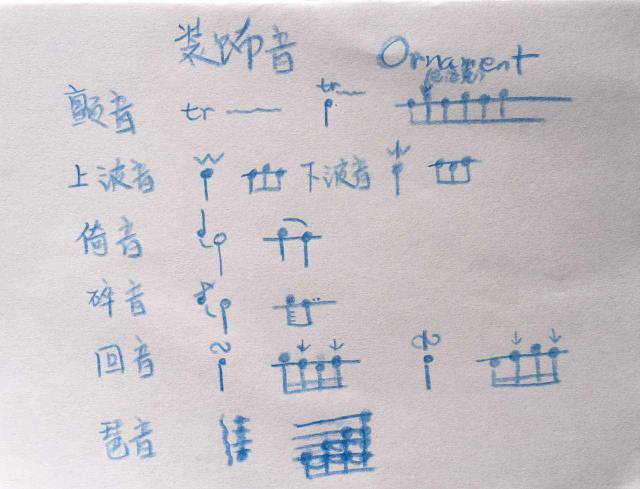 装饰音 Ornament
颤音 tr tr
上波音 下波音
倚音
碎音
回音
琶音